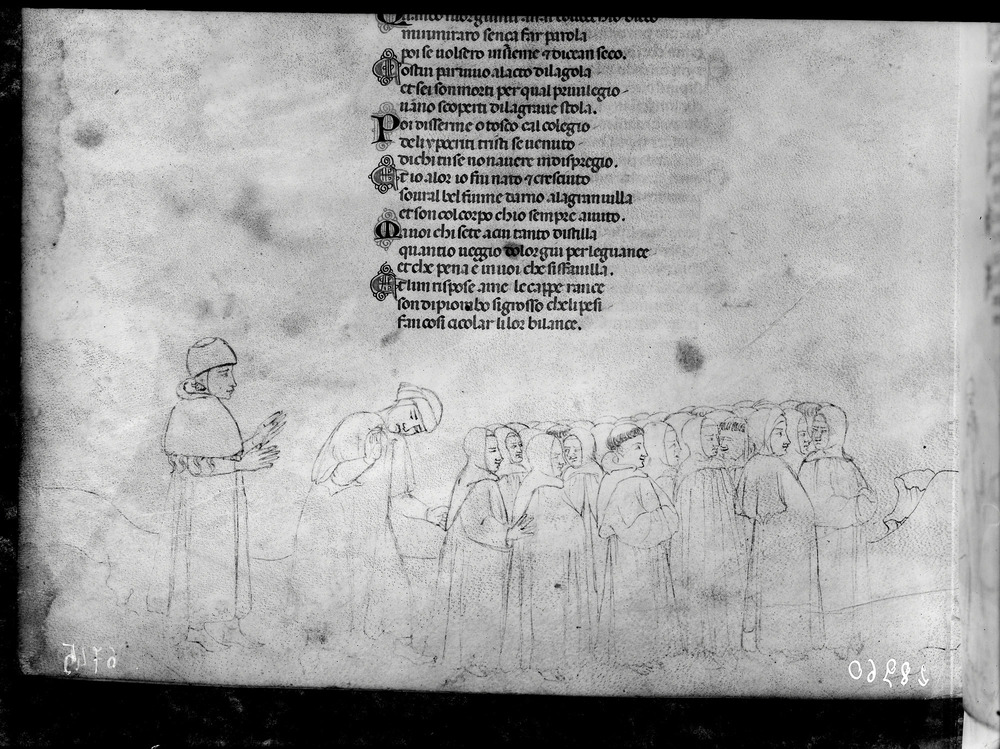 miraro sença far parola
poi se volsero insieme ⁊ dicean seco.
Costui par vivo alacto dilagola
et sei son morti per qual privilegio
vãno scoperti dilagrave stola.
Poi disserme o tosco cal colegio
deli ypocriti tristi se venuto
dichi tu se non avere indispregio.
Et io alor io fui nato ⁊ cresciuto
sovral bel fiume darno alagran villa
et son col corpo chio sempre avuto.
Ma voi chi sete acui tanto distilla
quantio veggio dolor giu per leguance
et che pena e in voi che si sfavilla.
Et lun rispose ame le cappe rance
son di piombo si grosso che li pesi
fan cosi cicolar li lor bilance.
6745
28960